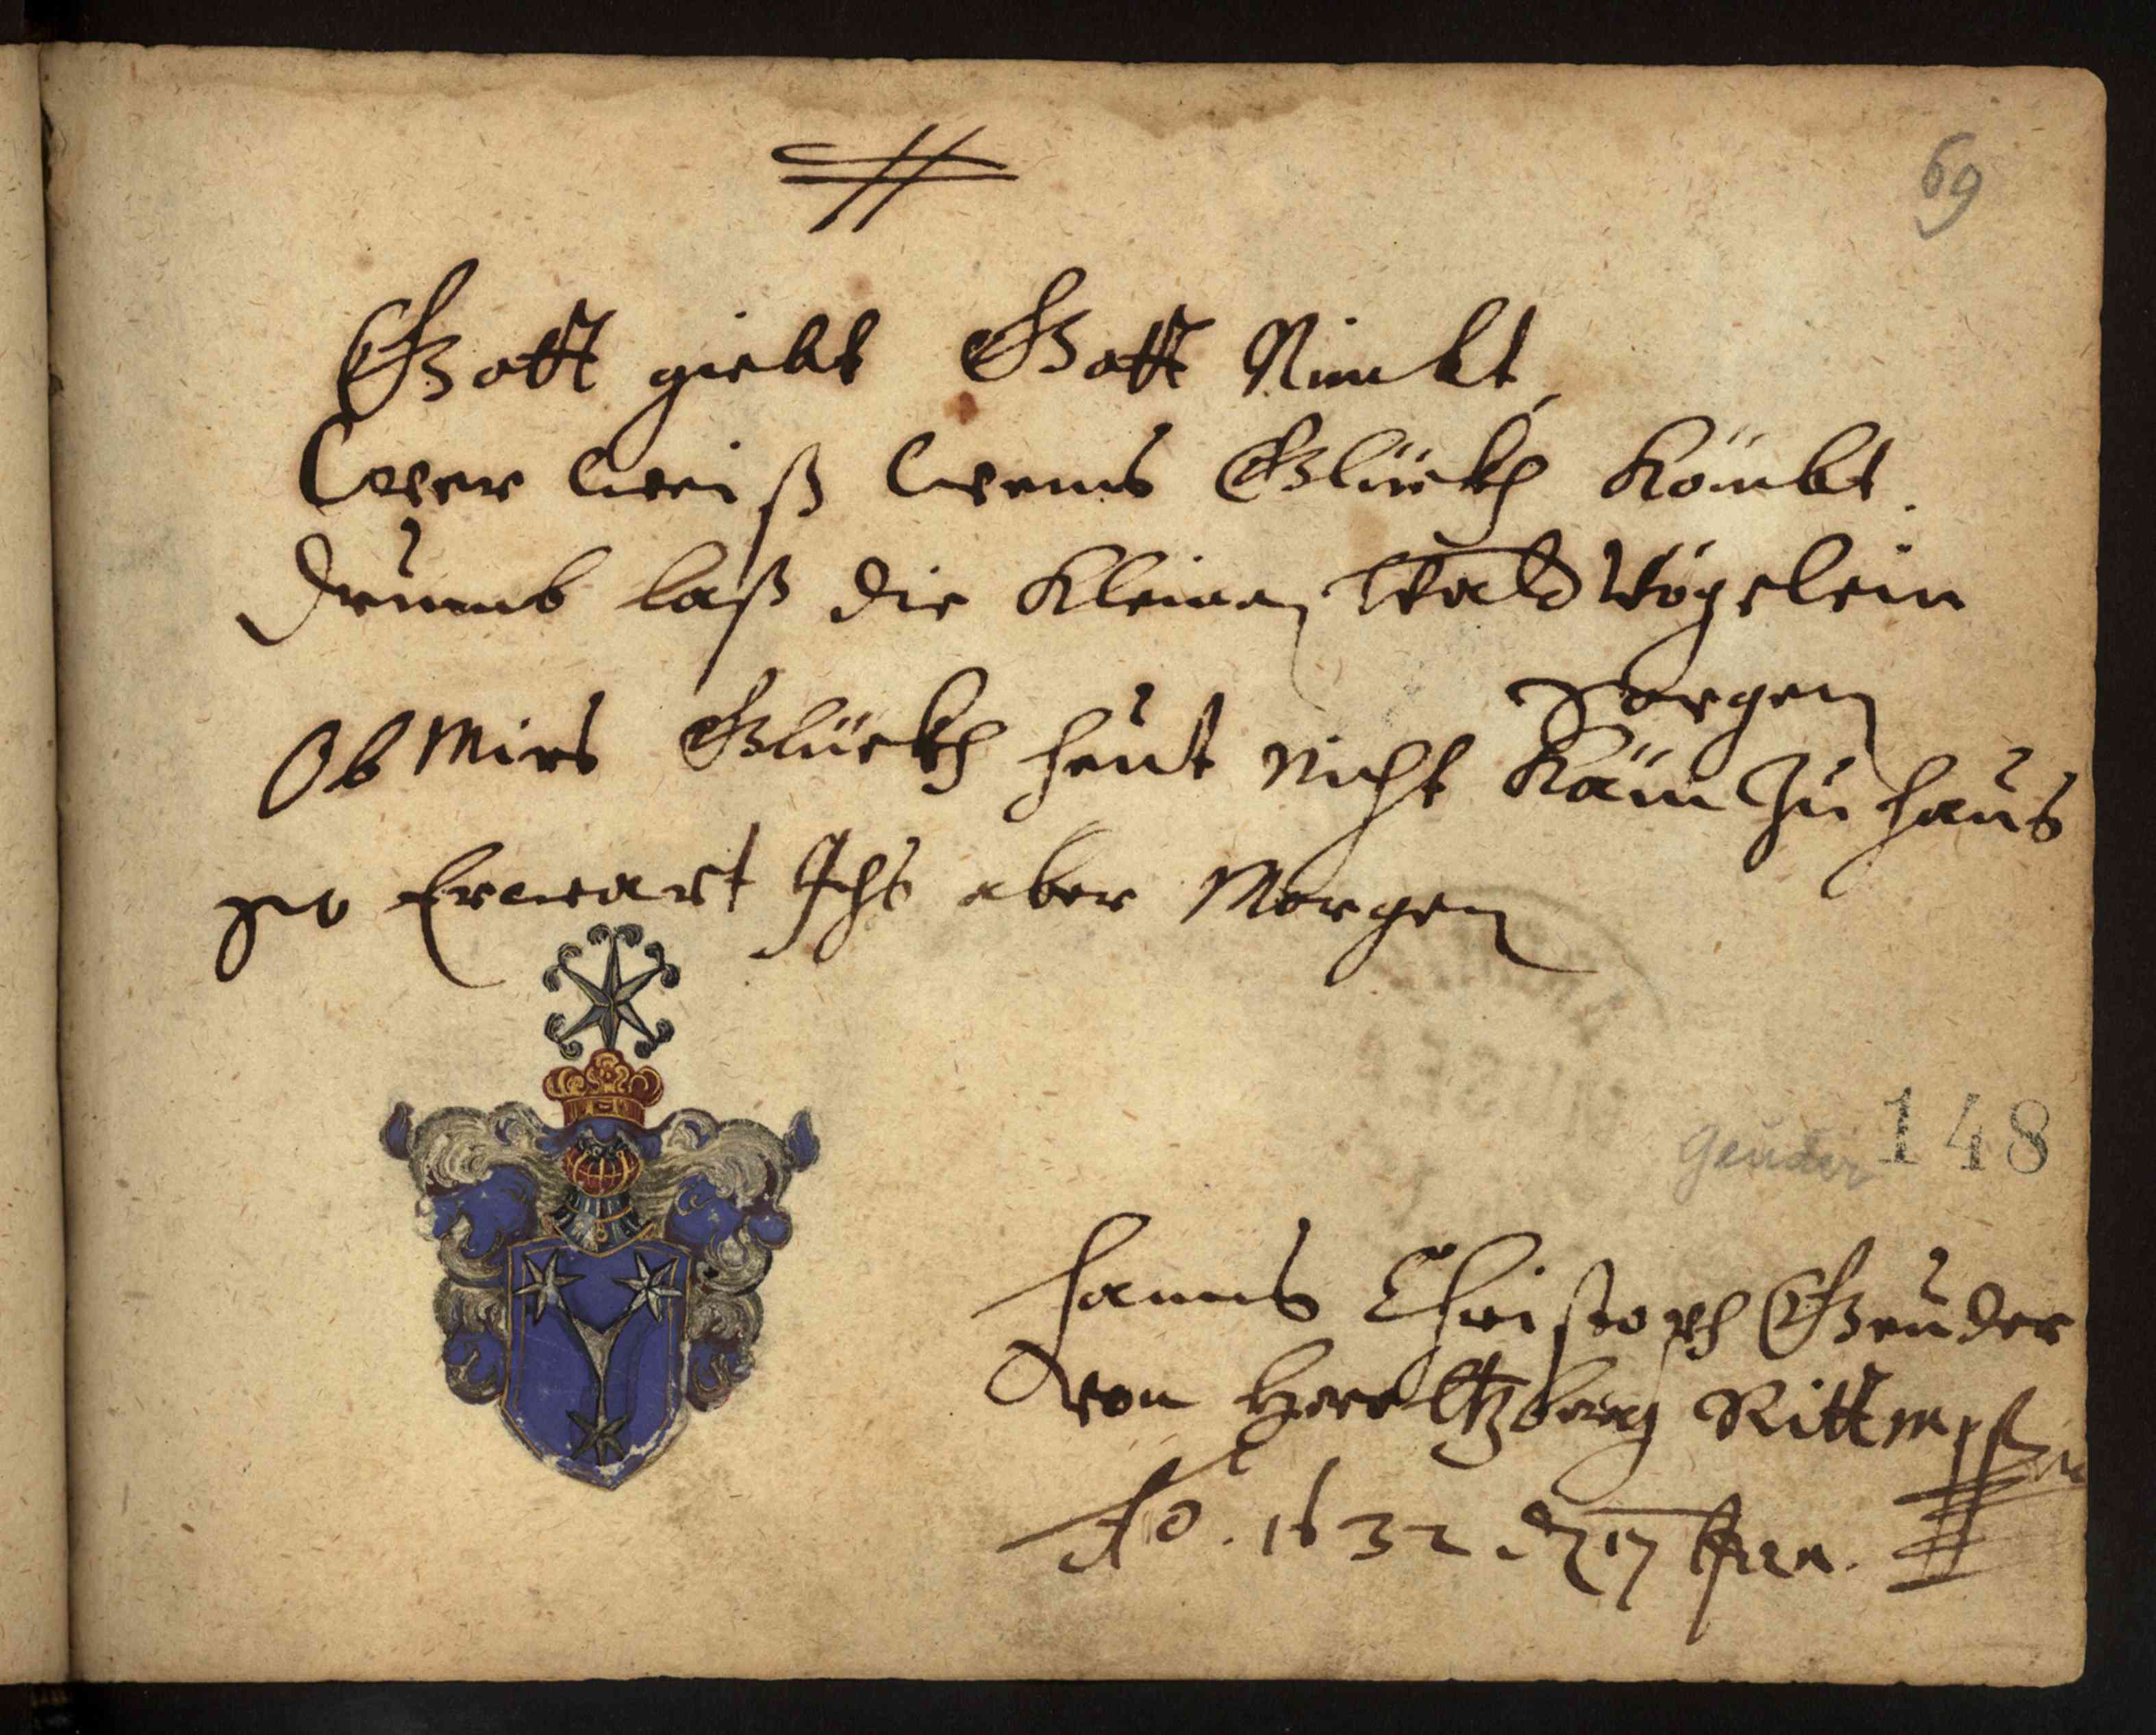 69
Gott giebt Gott Nimbt,
Wer weiß wems Glückh Kömbt.
Drumb laß die Kleinen Wald Vögelein
Sorgen
Ob Mirs Glückh heut nicht Käm Zu haus
So Erwart Ichs aber Morgen
148
Geuder
Hanns Christoph Geuder
von Heroltzberg Rittm
Ao. 1632. 17